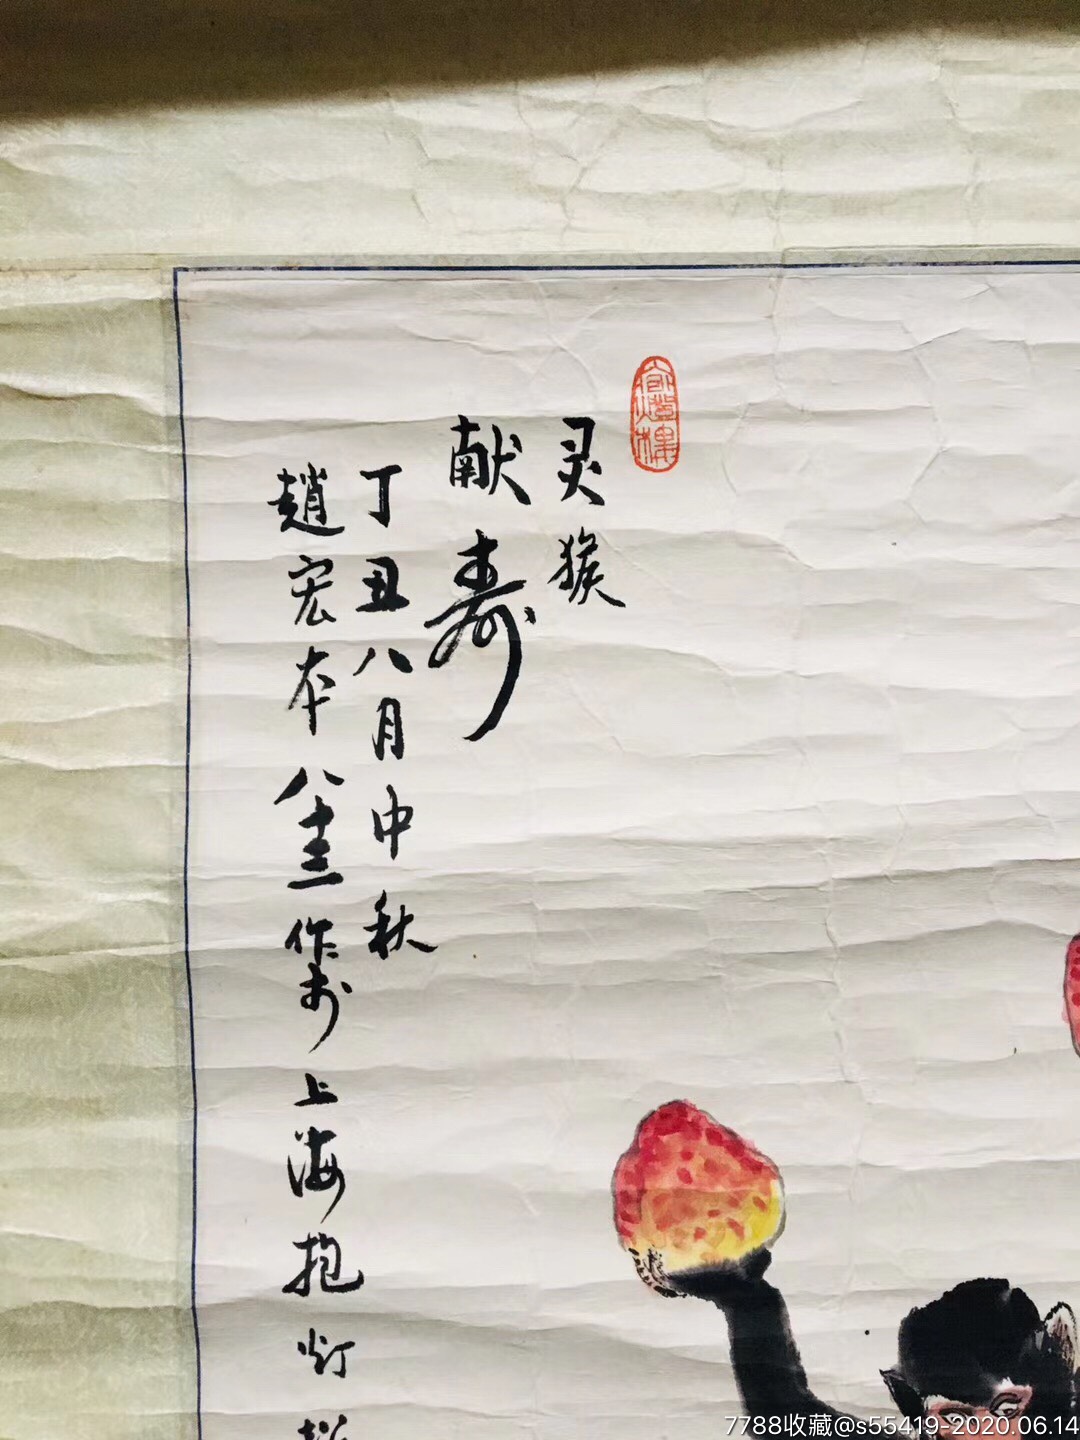 灵猴
献寿
丁丑八月中秋
趙宏本八十三作於上海抱灯
7788收藏@s55419-2020.06.14